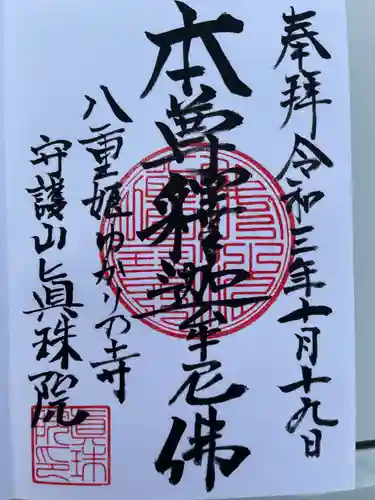 奉拝 令和三年十月十九日
本尊釋迦牟尼佛
八重姫ゆかりの寺
守護山眞珠院
眞珠院印